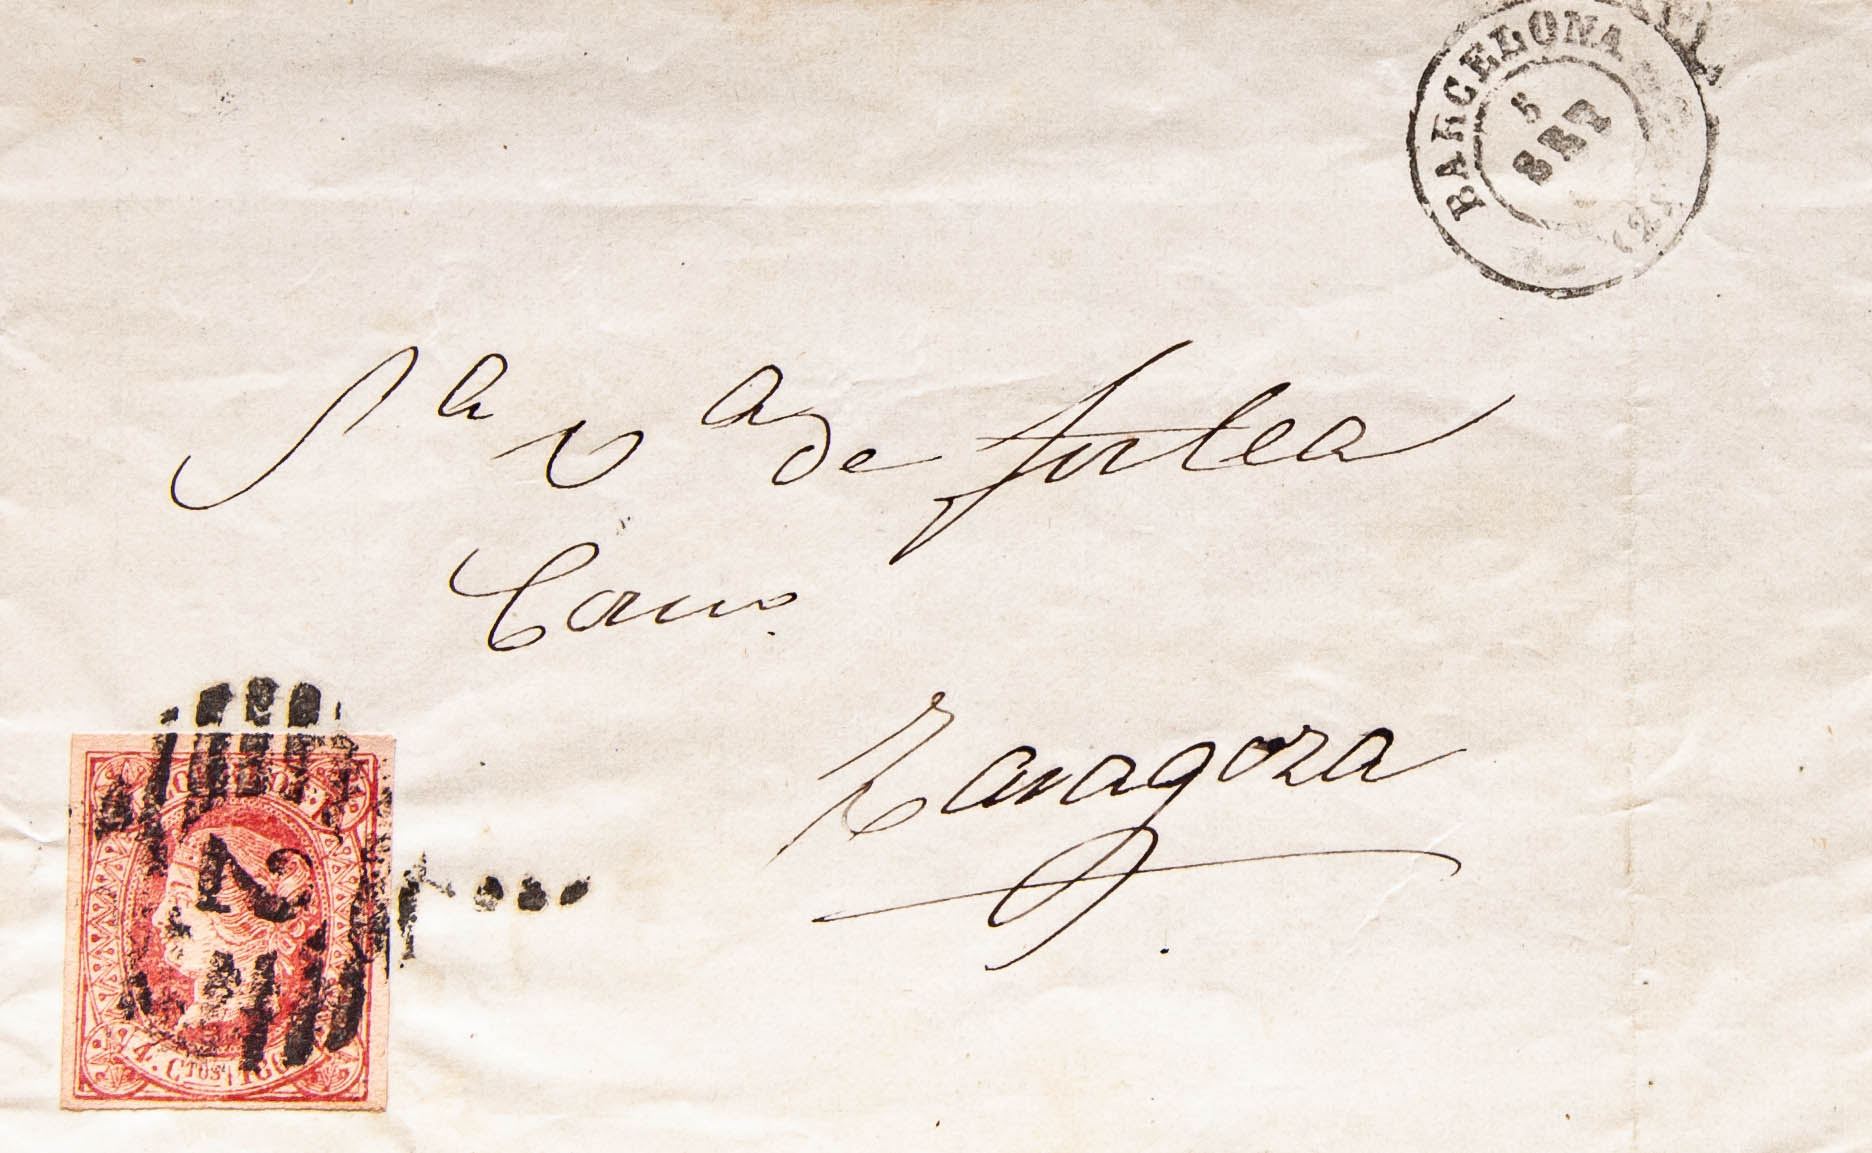 BARCELONA
5
SET
Sª Vª de Fortea
Coso
Zaragoza
2
4. CTOS. 186